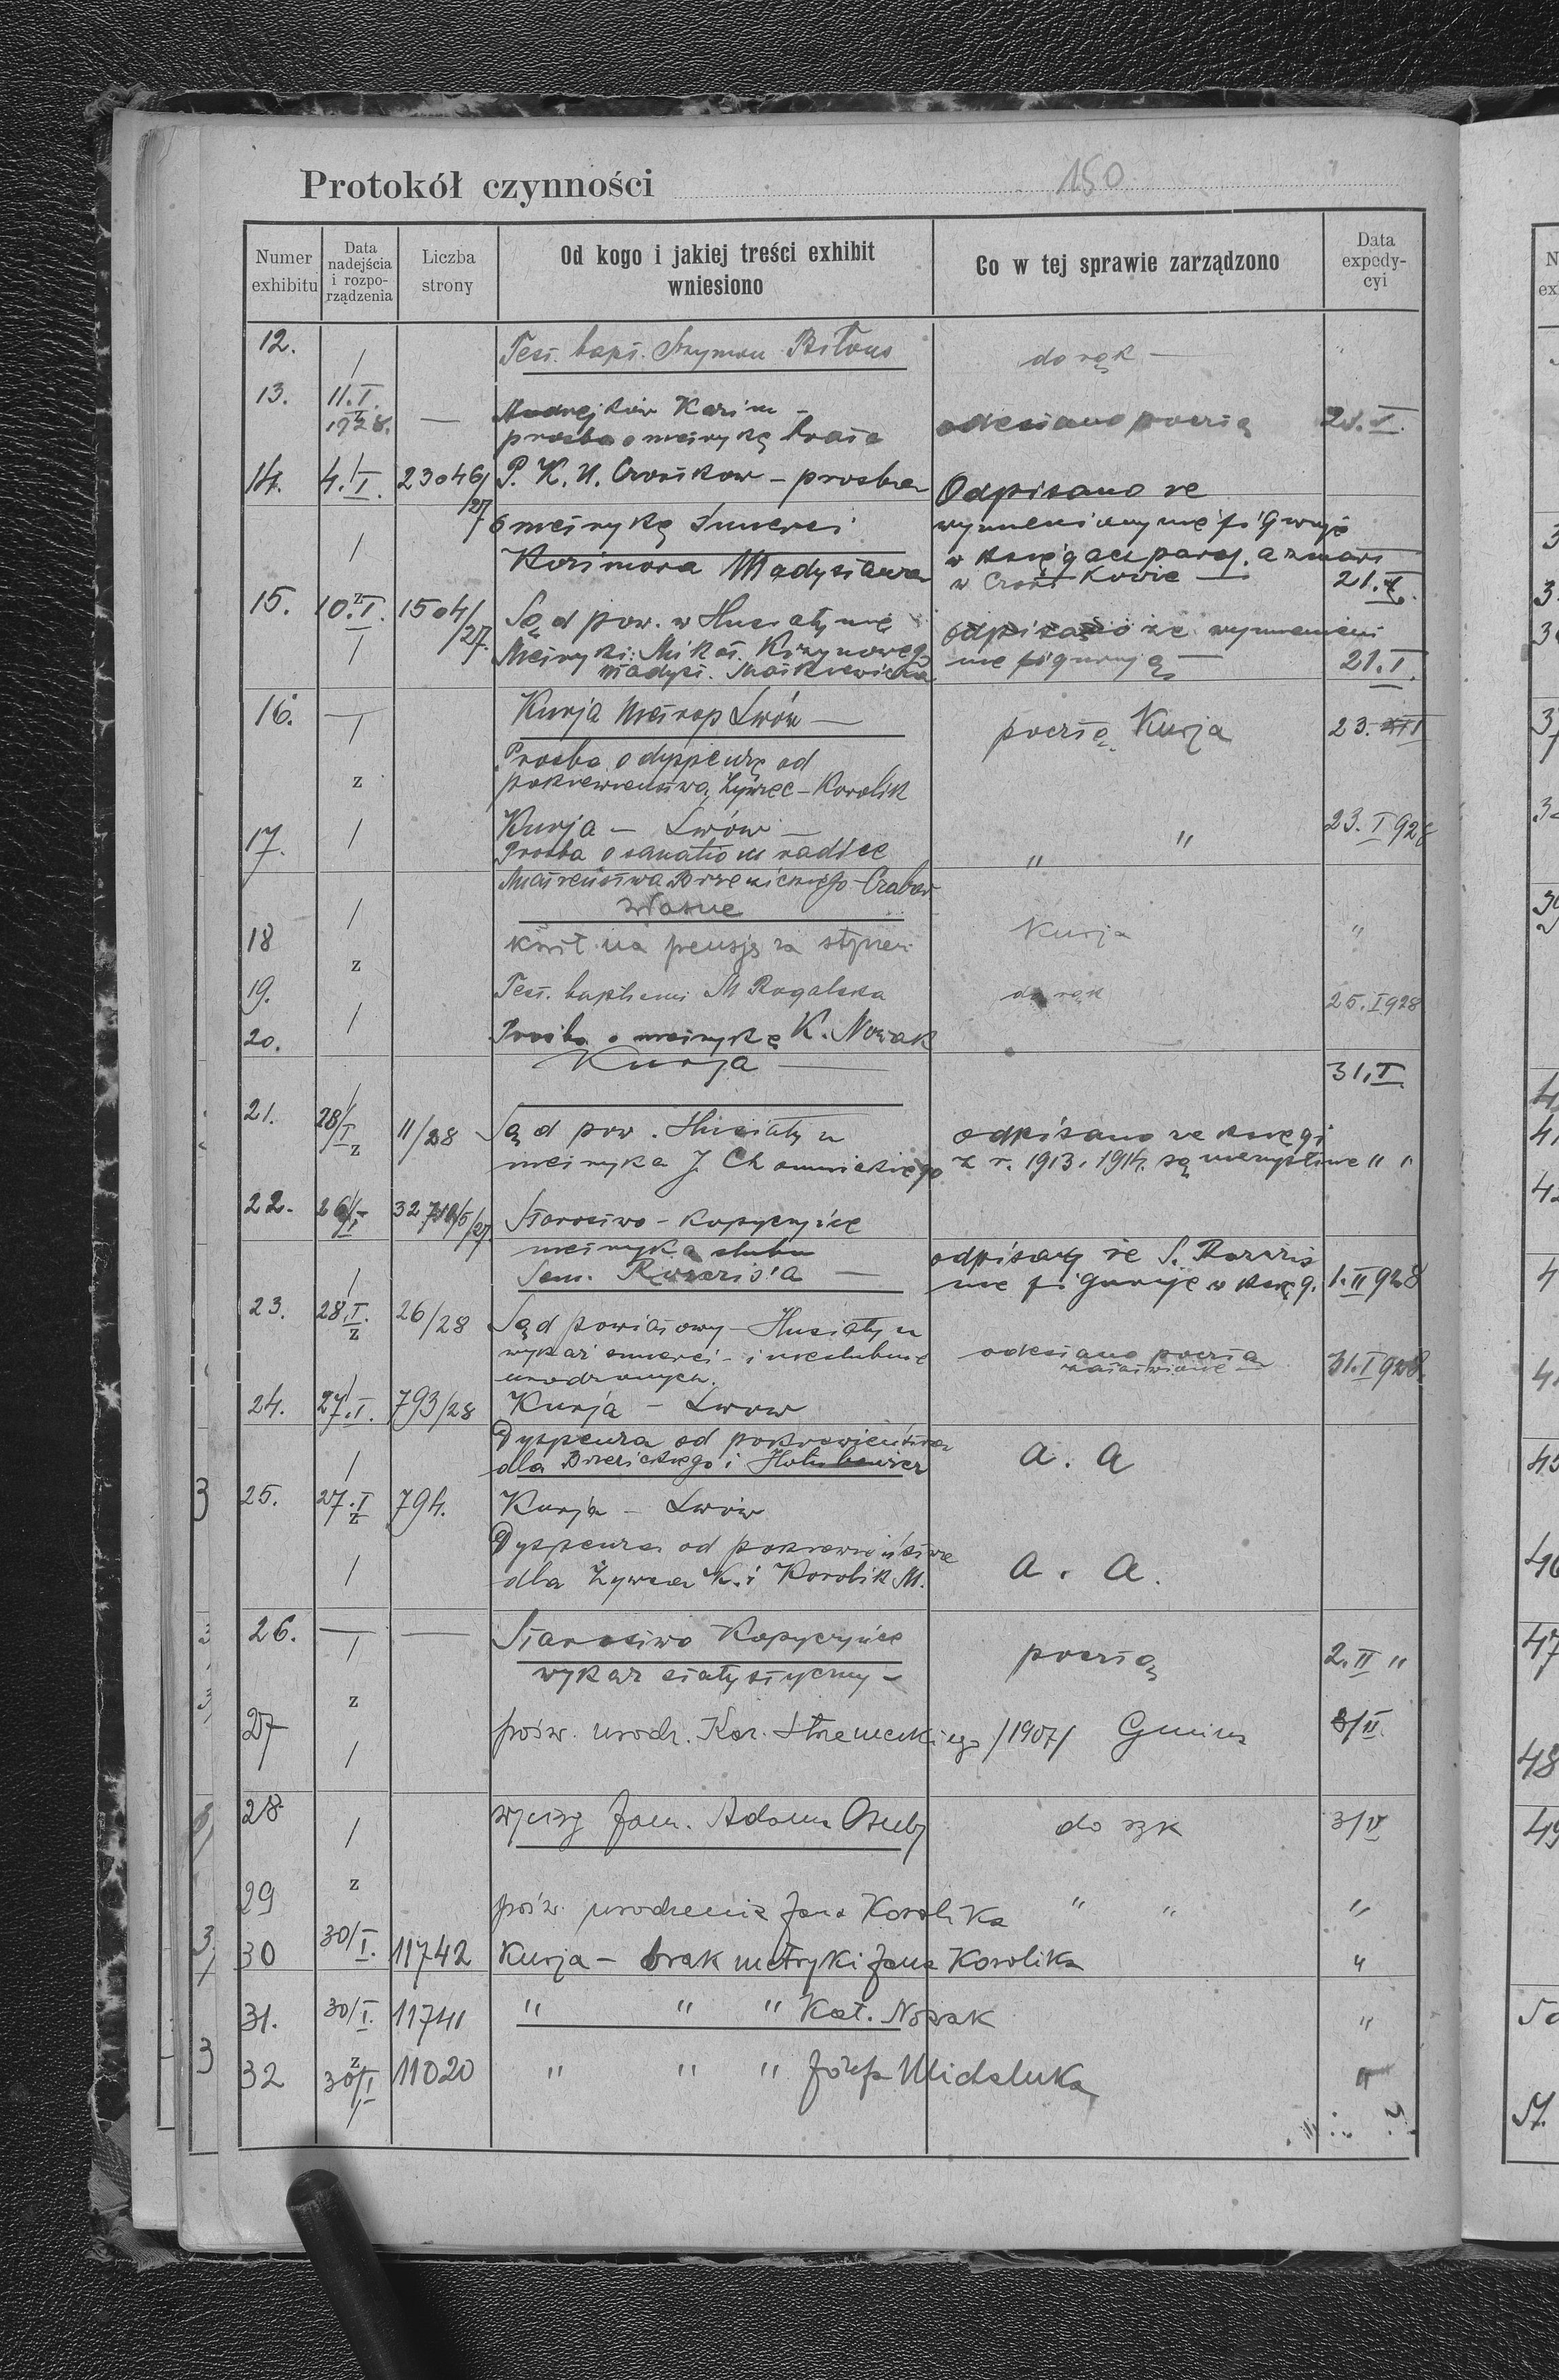 Protokół czynności 150
Numer exhibitu
Data nadejścia i rozporządzenia
Liczba strony
Od kogo i jakiej treści exhibit wniesiono
Co w tej sprawie zarządzono
Data expedycyi
12. Test. bapt. Szymon Biłous do rąk —
13. 11.I. 1928. — Kazim —
prośba o metrykę brata odesłano pocztą 21.I.
14. 4.I. 23046/27 P. K. U. Czortków – prośba Odpisano że
o metrykę śmierci wymieniony nie figuruje
Kazimora Władysława w księgach paraf. a zmarł
w Czortkowie — 21.I.
15. 10.I. 1504/27. Sąd pow. w Husiatynie odpisano że wymienieni
Metryki: Mikoł. nie figurują — 21.I.
Władysł.
16. — Kurja Metrop Lwów — pocztą Kurja 23.
Prośba o dyspenzę od
pokrewieństwa Żywiec – Korolik
17. Kurja – Lwów — " " 23.I 928
Prośba o sanatio in radice
Małżeństwa
własne
18 kwit na pensję za styczeń Kurja "
19. Test. baptismi M Rogalska do rąk 25.I 928
20. Prośba o metrykę K. Nowak
Kurja — 31.I
21. 28/I 11/28 Sąd pow. Husiatyn odpisano że księgi
metryka J. Chomnickiego z r. 1913. 1914. są " "
22. 26/I /27 Starostwo – Kopyczyńce
metryka ślubu odpisany że S.
Sem. — nie figuruje w księg. 1.II 928
23. 28.I. 26/28 Sąd powiatowy – Husiatyn
wykaz śmierci – i nieślubnie odesłano pocztą 31.I 928.
urodzonych.
24. 27.I. 793/28 Kurja – Lwow
Dyspenza od pokrewieństwa a. a
dla i
25. 27.I 794. Kurja – Lwów
Dyspenza od pokrewieństwa
dla Żywca K. i Korolik M. a. a.
26. — — Starostwo Kopyczyńce pocztą 2.II "
wykaz statystyczny –
27 pośw. urodz. Kar. /1907/ Gmina 3/II.
28 wyciąg fam. Adama Osuby do rąk 3/II
29 pośw. urodzenia Jana Korolika " " "
30 30/I. 11742 Kurja – brak metryki Jana Korolika "
31. 30/I. 11741 " " " Kat. Nowak "
32 30/I 11020 " " " Józefa Michaluka "